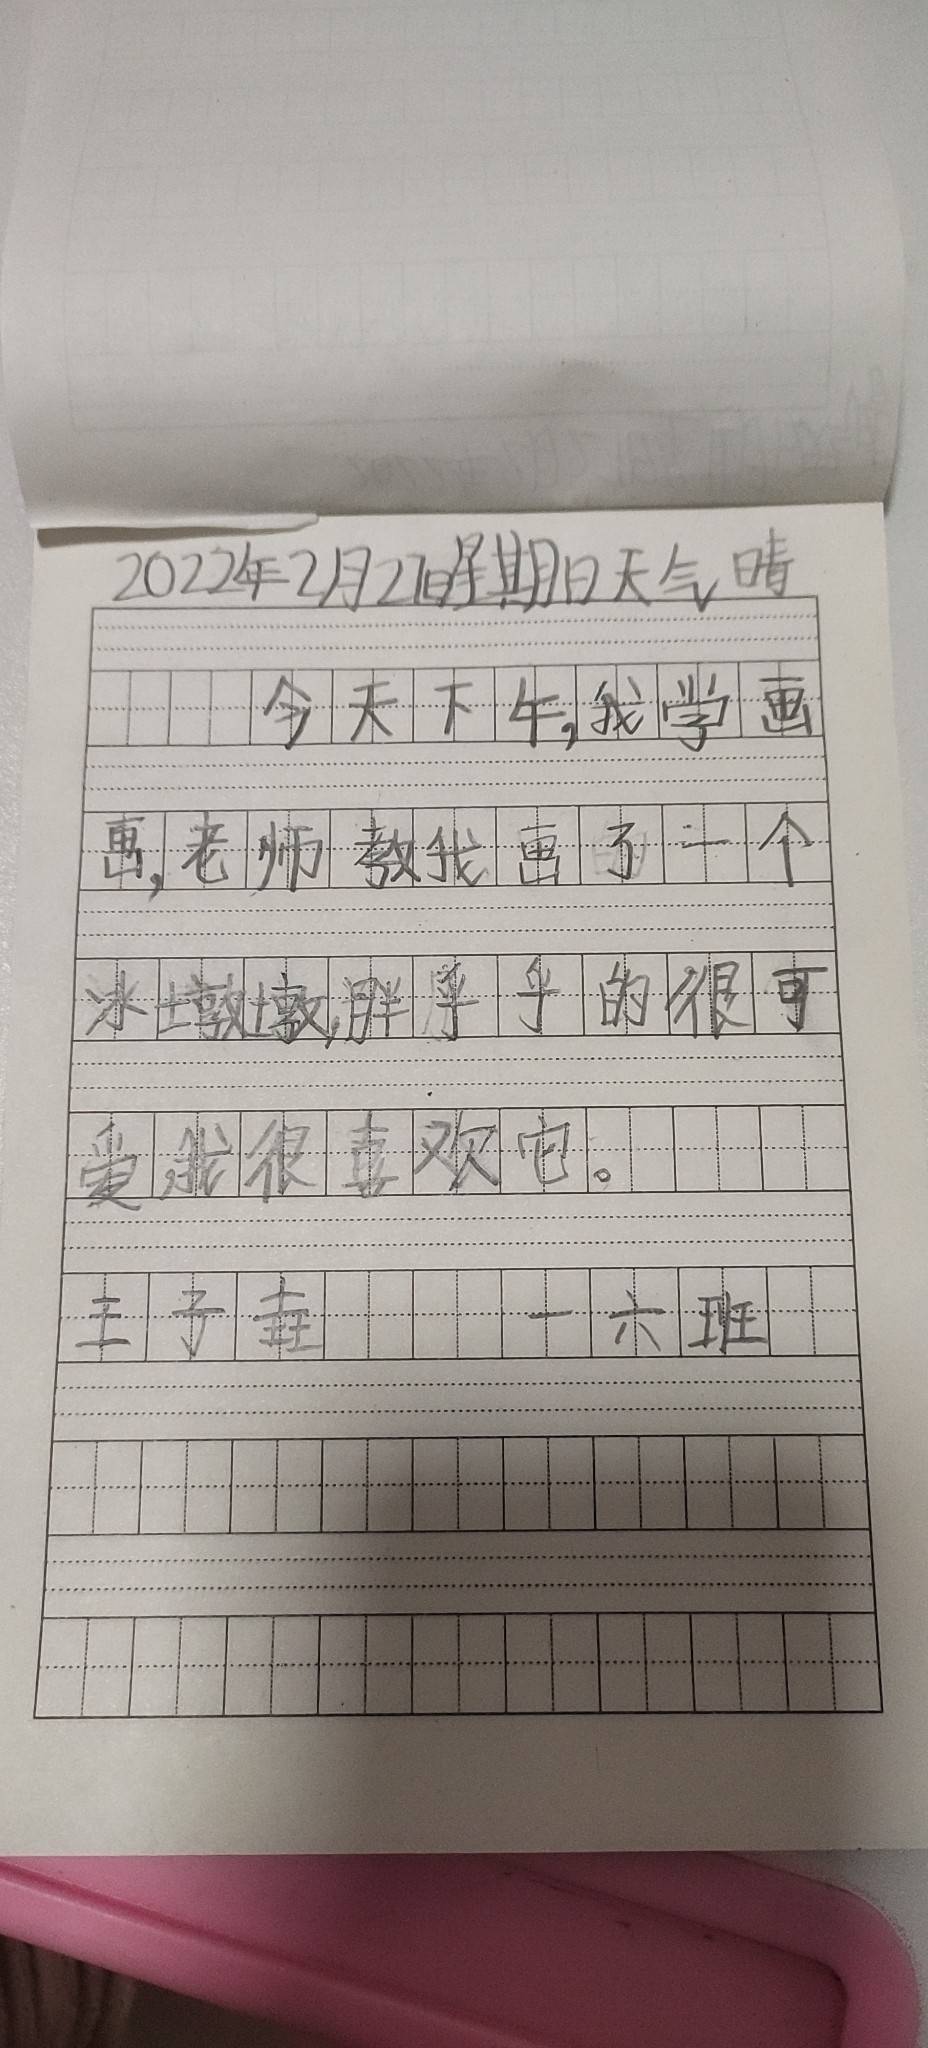 2022年2月27日星期日天气晴
今天下午,我学画
画,老师教我画了一个
冰墩墩,胖乎乎的很可
爱,我很喜欢它。
王子 一六班